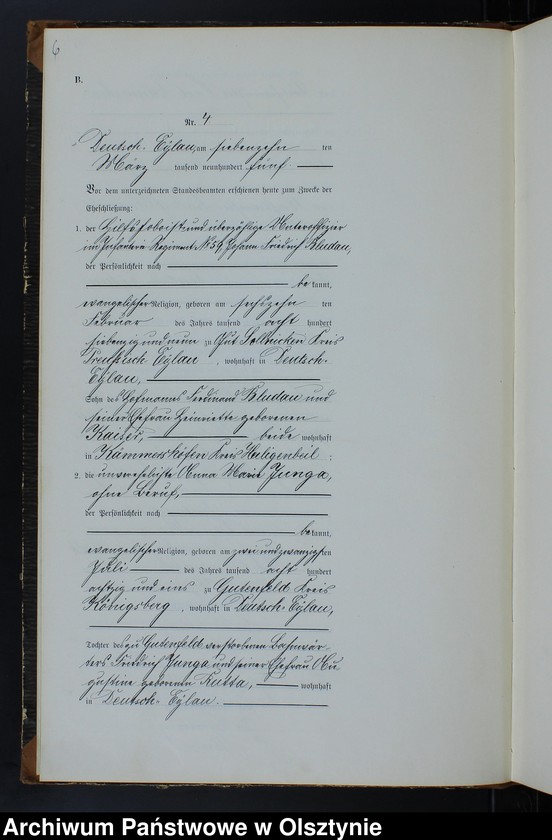 6
B.
Nr. 4
Deutsch-Eylau am siebenzehn ten
März tausend neunhundert fünf.
Vor dem unterzeichneten Standesbeamten erschienen heute zum Zwecke der
Eheschließung:
1. der Hilfshoboist und überzählige Unteroffizier
im Infanterie Regiment № 59, Johann Friedrich Bludau,
der Persönlichkeit nach
bekannt,
evangelischer Religion, geboren am sechszehn ten
Februar des Jahres tausend acht hundert
siebenzig und neun zu Gut Kreis
Preußisch Eylau, wohnhaft in Deutsch-
Eylau,
Sohn des Hofmanns Ferdinand Bludau und
seiner Ehefrau Heinriette geborenen
Kaiser, beide wohnhaft
in Kämmershöfen Kreis Heiligenbeil;
2. die unverehelichte Anna Marie Junga,
ohne Beruf,
der Persönlichkeit nach
bekannt,
evangelischer Religion, geboren am zwei und zwanzigsten
Juli des Jahres tausend acht hundert
achtzig und eins zu Gutenfeld Kreis
Königsberg, wohnhaft in Deutsch-Eylau,
Tochter des zu Gutenfeld verstorbenen Bahnwär-
ters Friedrich Junga und seiner Ehefrau Au
gustine geborenen Kutta, wohnhaft
in Deutsch-Eylau.
Archiwum Państwowe w Olsztynie